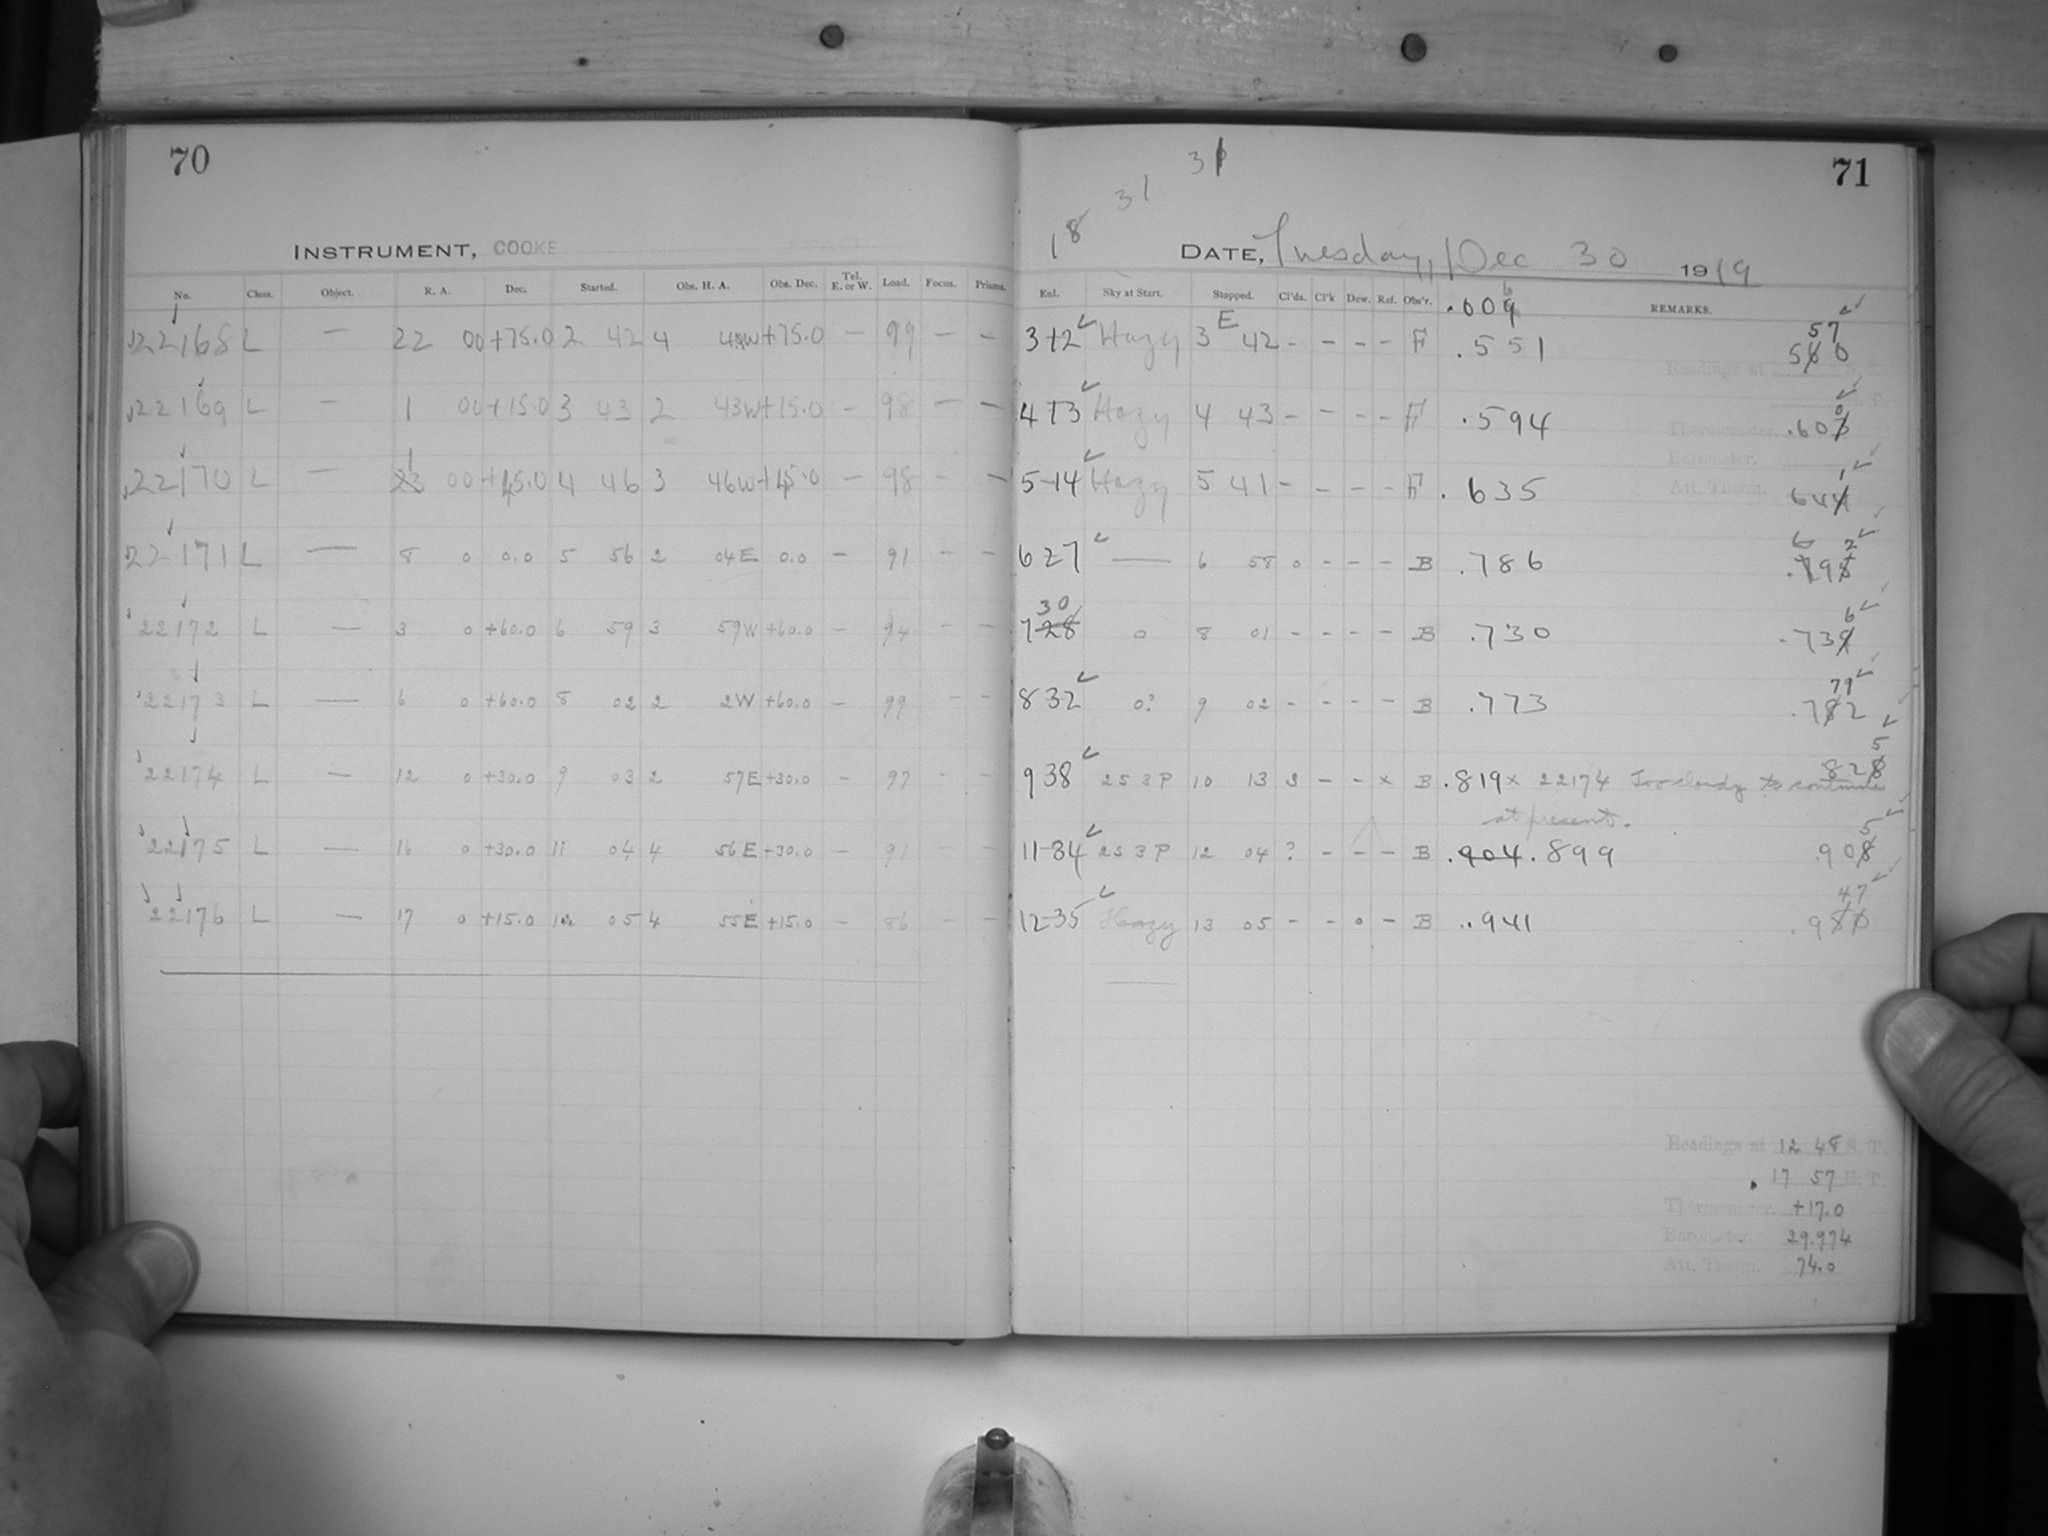 70
INSTRUMENT, COOKE
No. Class. Object. R. A. Dec. Started. Obs. H. A. Obs. Dec. Tel. E. or W. Load. Focus. Prisms.
22168 L — 22 00 +75.0 2 42 4 +75.0 — 99 — —
22169 L — 1 00 +15.0 3 43 2 43W +15.0 — 98 — —
22170 L — 1 00 +45.0 4 46 3 46W +45.0 — 98 — —
22171 L — 8 0 0.0 5 56 2 04E 0.0 — 91 — —
22172 L — 3 0 +60.0 6 59 3 59W +60.0 — 94 — —
22173 L — 6 0 +60.0 8 02 2 2W +60.0 — 99 — —
22174 L — 12 0 +30.0 9 03 2 57E +30.0 — 97 — —
22175 L — 16 0 +30.0 11 04 4 56E +30.0 — 91 — —
22176 L — 17 0 +15.0 12 05 4 55E +15.0 — 86 — —
71
31
31
18
DATE, Tuesday, Dec 30 1919
Enl. Sky at Start. Stopped. Cl'ds. Cl'k Dew. Ref. Obs'r. REMARKS.
.606
3 12 Hazy 3 E 42 - - - - F .551 570
4 13 Hazy 4 43 - - - - F .594 .600
5-14 Hazy 5 41 - - - - F .635 641
6 27 — 6 58 0 - - - B .786
7 30 0 8 01 - - - - B .730 .736
8 32 0? 9 02 - - - - B .773 .792
9 38 2S 3P 10 13 3 - - × B .819 × 22174 Too cloudy to continue 825
at present.
11-34 2S 3P 12 04 ? - - - B .904 .899 .905
12-35 Hazy 13 05 - - 0 - B .941 .947
Readings at 12 48 S. T.
17 57 E. T.
Thermometer. +17.0
Barometer. 29.974
Att. Therm. 74.0